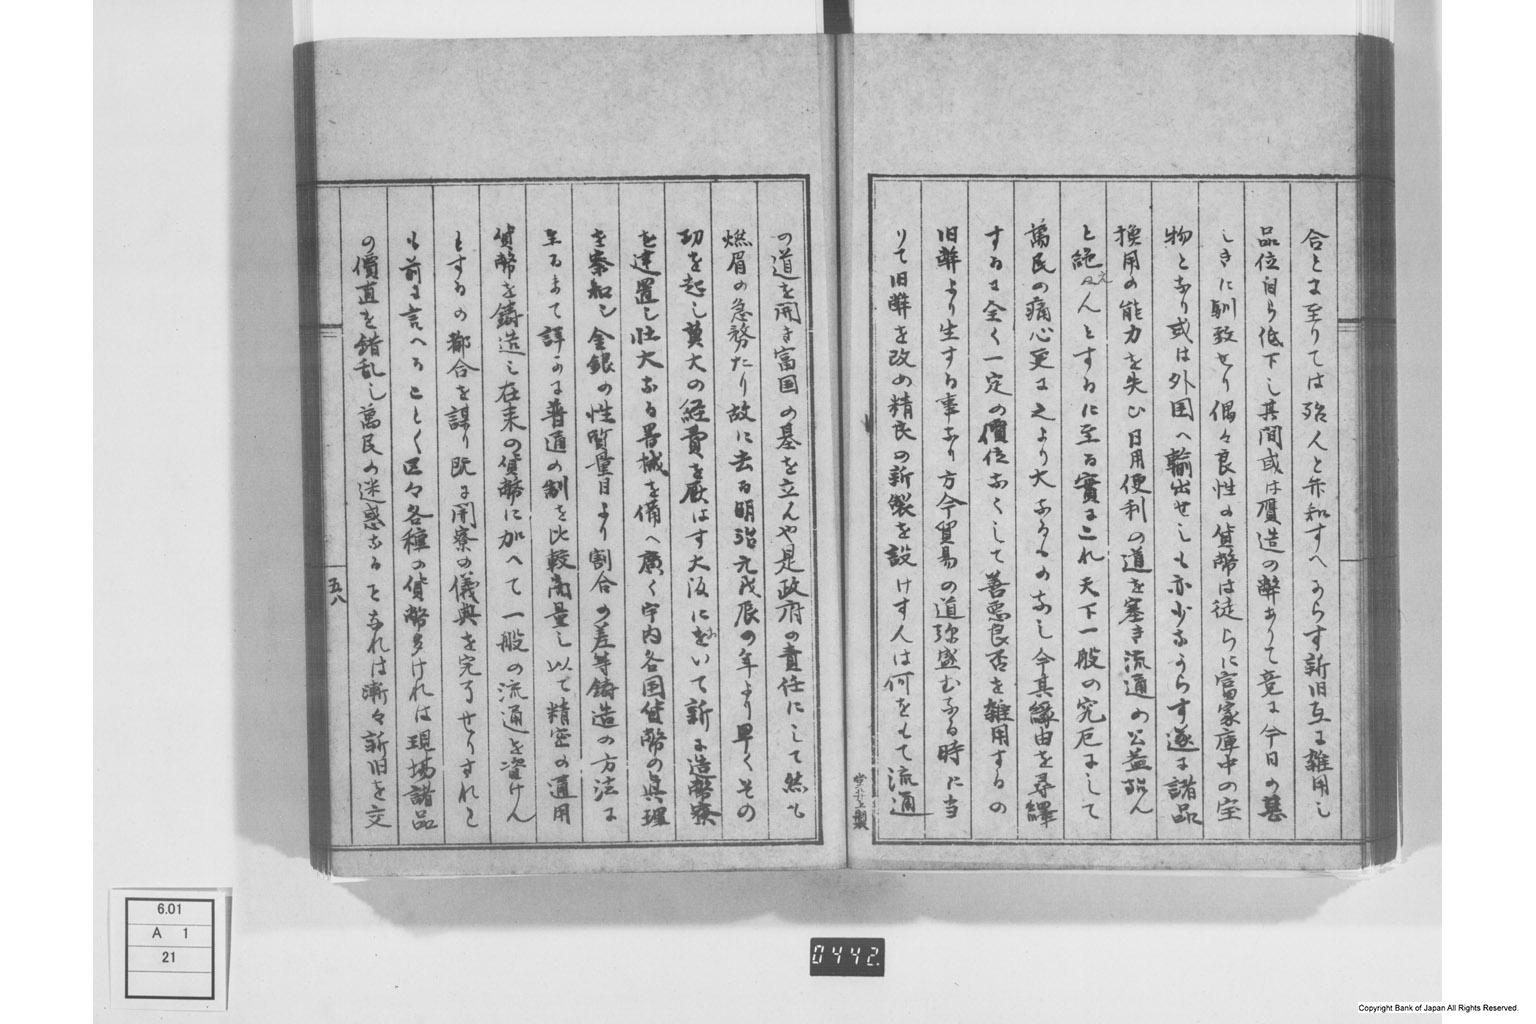 合とに至りては殆人と弁知すへからす新旧互に雑用し
品位自ら低下し其間或は贋造の弊ありて竟に今日の甚
しきに馴致せり偶々良性の貨幣は徒らに富家庫中の宝
物となり或は外国へ輸出せしも亦少なからす遂に諸品
換用の能力を失ひ日用便利の道を塞き流通の公益殆ん
と絶へんとするに至る実にこれ天下一般の窮厄にして
萬民の痛心更に之より大なるものなし今其縁由を尋繹
するに全く一定の價位なくして善悪良否を雑用するの
旧弊より生する事なり方今貿易の道弥盛むなる時に当
りて旧弊を改め精良の新製を設けす人は何をもて流通
の道を開き富国の基を立んや是政府の責任にして然も
燃眉の急務たり故に去る明治元戊辰の年より早くその
功を起し莫大の経費を厭はす大阪にをいて新に造幣寮
を建置し壮大なる器械を備へ広く宇内各国貨幣の真理
を察知し金銀の性質量目より割合の差等鋳造の方法に
至るまて詳かに普通の制を比較商量し以て精密の通用
貨幣を鋳造し在来の貨幣に加へて一般の流通を資けん
とするの都合を謀り既に開寮の儀典を完了せりすれと
も前に言へることく区々各種の貨幣多けれは現場諸品
の價直を錯乱し萬民の迷惑なることなれは漸々新旧を交
五八
0442
6.01
A 1
21
Copyright Bank of Japan All Rights Reserved.